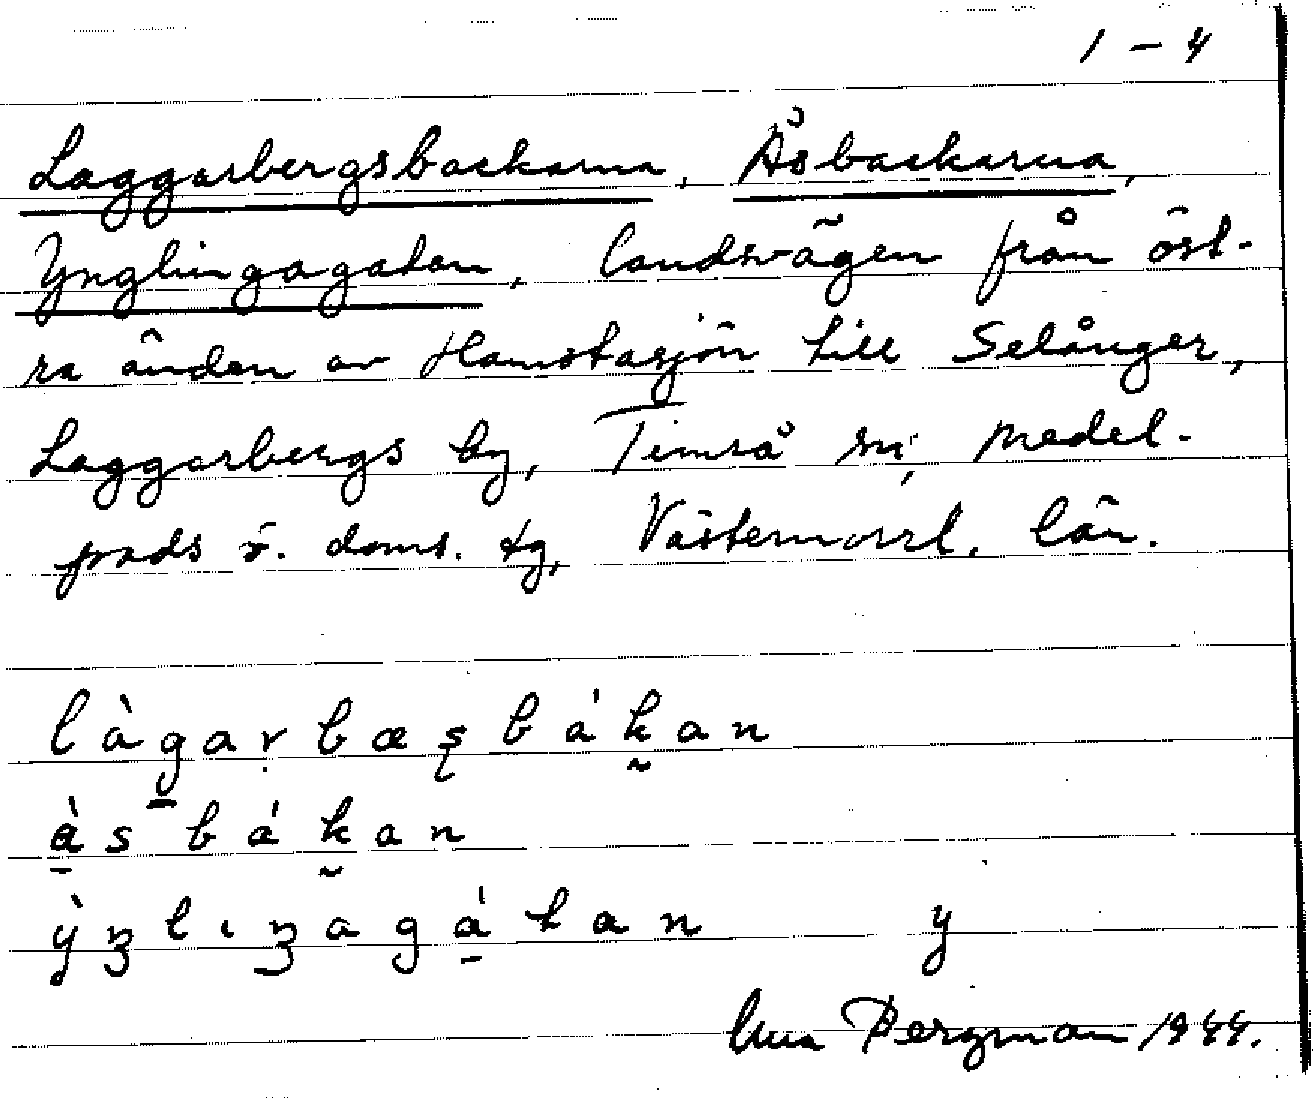 1 – 4
Laggarbergsbackarna, Åsbackarna,
Ynglingagatan, landsvägen från öst-
ra änden av Hamstasjön till Selånger,
Laggarbergs by, Timrå sn, Medel-
pads ö. doms. tg, Västernorrl. län.
làgarbæșbákan
às bákan
ỳŋlıŋagátan y
Bergman 1944.